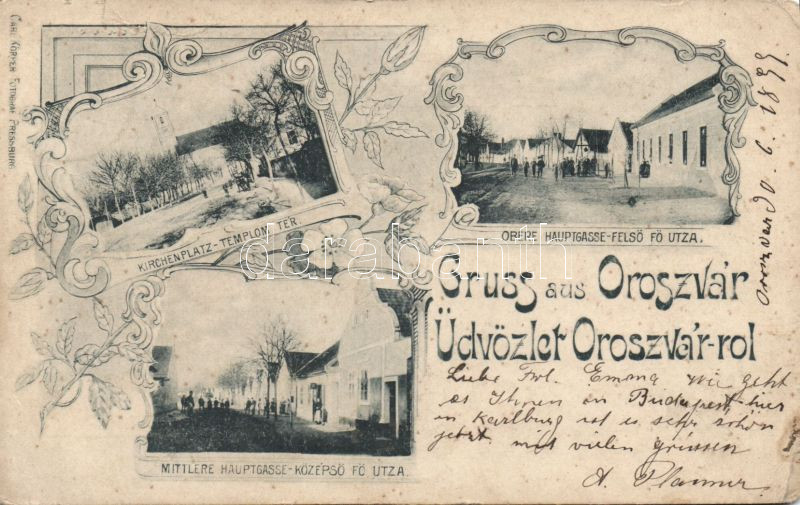 CARL KÖRPER FOTOGRAF PRESSBURG.
KIRCHENPLATZ-TEMPLOM TÉR.
OBERE HAUPTGASSE-FELSŐ FŐ UTZA.
Gruss aus Oroszvár
Üdvözlet Oroszvár-rol
MITTLERE HAUPTGASSE-KÖZÉPSŐ FŐ UTZA.
Oroszvár 6. 1899
Liebe Frl. Emma wie geht
es Ihnen in Budapest, hier
in Karlburg ist es sehr schön
jetzt mit vielen grüssen
A. Planner
darabanth